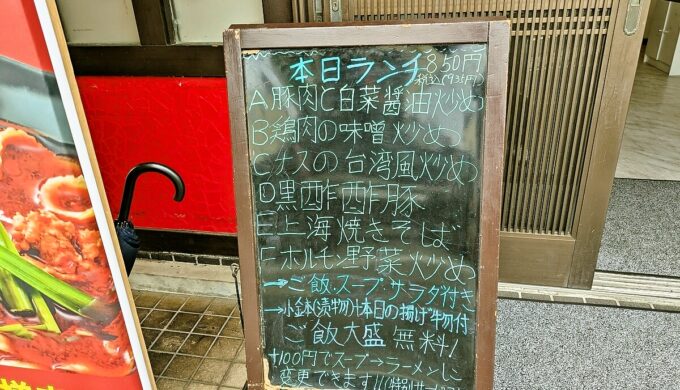 本日ランチ 850円
税込(935円)
A豚肉と白菜醤油炒め
B鶏肉の味噌炒め
Cナスの台湾風炒め
D黒酢酢豚
E上海焼きそば
Fホルモン野菜炒め
→ご飯、スープ、サラダ付き
→小鉢(漬物)+本日の揚げ物付
ご飯大盛無料!
+100円でスープ→ラーメンに
変更できます!!(特別サービス)